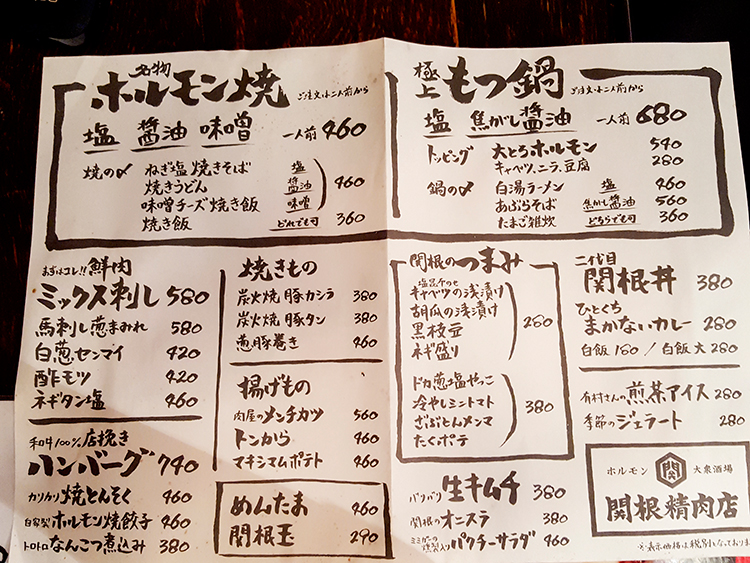 名物
ホルモン焼 ご注文は二人前から
塩 醤油 味噌 一人前 460
焼の〆 ねぎ塩焼きそば 塩
焼きうどん 醤油 460
味噌チーズ焼き飯 味噌
焼き飯 どれでも可 360
極上 もつ鍋 ご注文は二人前から
塩 焦がし醤油 一人前 680
トッピング 大とろホルモン 540
キャベツ、ニラ、豆腐 280
鍋の〆 白湯ラーメン 塩 460
あぶらそば 焦がし醤油 560
たまご雑炊 どちらでも可 360
まずはコレ!! 鮮肉
ミックス刺し 580
馬刺し葱まみれ 580
白葱センマイ 420
酢モツ 420
ネギタン塩 460
和牛100%店挽き
ハンバーグ 740
カリカリ焼とんそく 460
自家製ホルモン焼餃子 460
トロトロなんこつ煮込み 380
焼きもの
炭火焼 豚カシラ 380
炭火焼 豚タン 380
葱豚巻き 460
揚げもの
肉屋のメンチカツ 560
トンから 460
マキシマムポテト 460
めんたま 460
関根玉 290
関根のつまみ
塩昆布のせ
キャベツの浅漬け
胡瓜の浅漬け
黒枝豆
ネギ盛り
280
ドカ葱塩やっこ
冷やしミニトマト
ざぶとんメンマ
たくポテ
380
バリバリ 生キムチ 380
関根のオニスラ 380
ミミガーの燻製入りパクチーサラダ 460
二代目
関根丼 380
ひとくち
まかないカレー 280
白飯 180 / 白飯大 280
有村さんの煎茶アイス 280
季節のジェラート 280
ホルモン 関 大衆酒場
関根精肉店
※表示価格は税別となっておりま